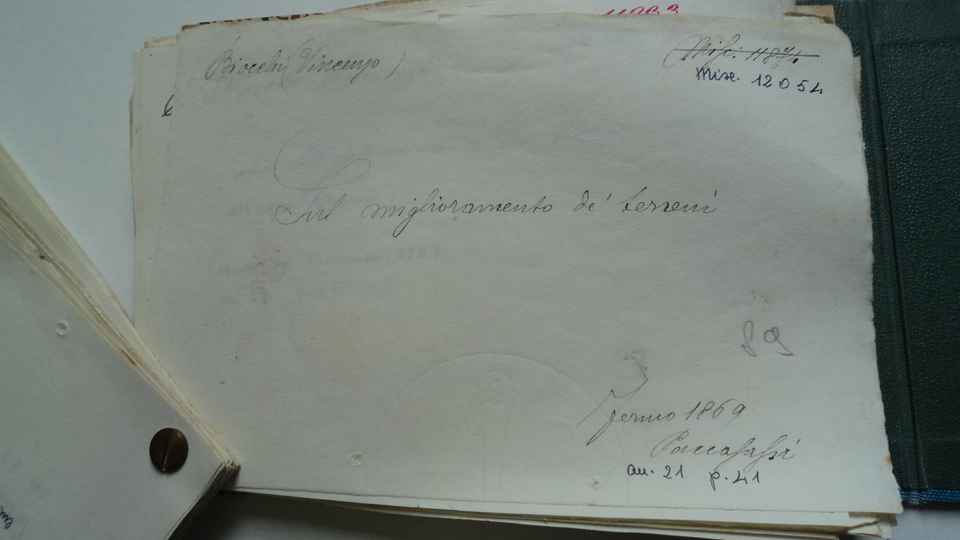 Biocchi (Vincenzo)
Misc. 1187
Misc. 12054
Sul miglioramento de' terreni
89
Fermo 1869
Paccasassi
au. 21 p. 41